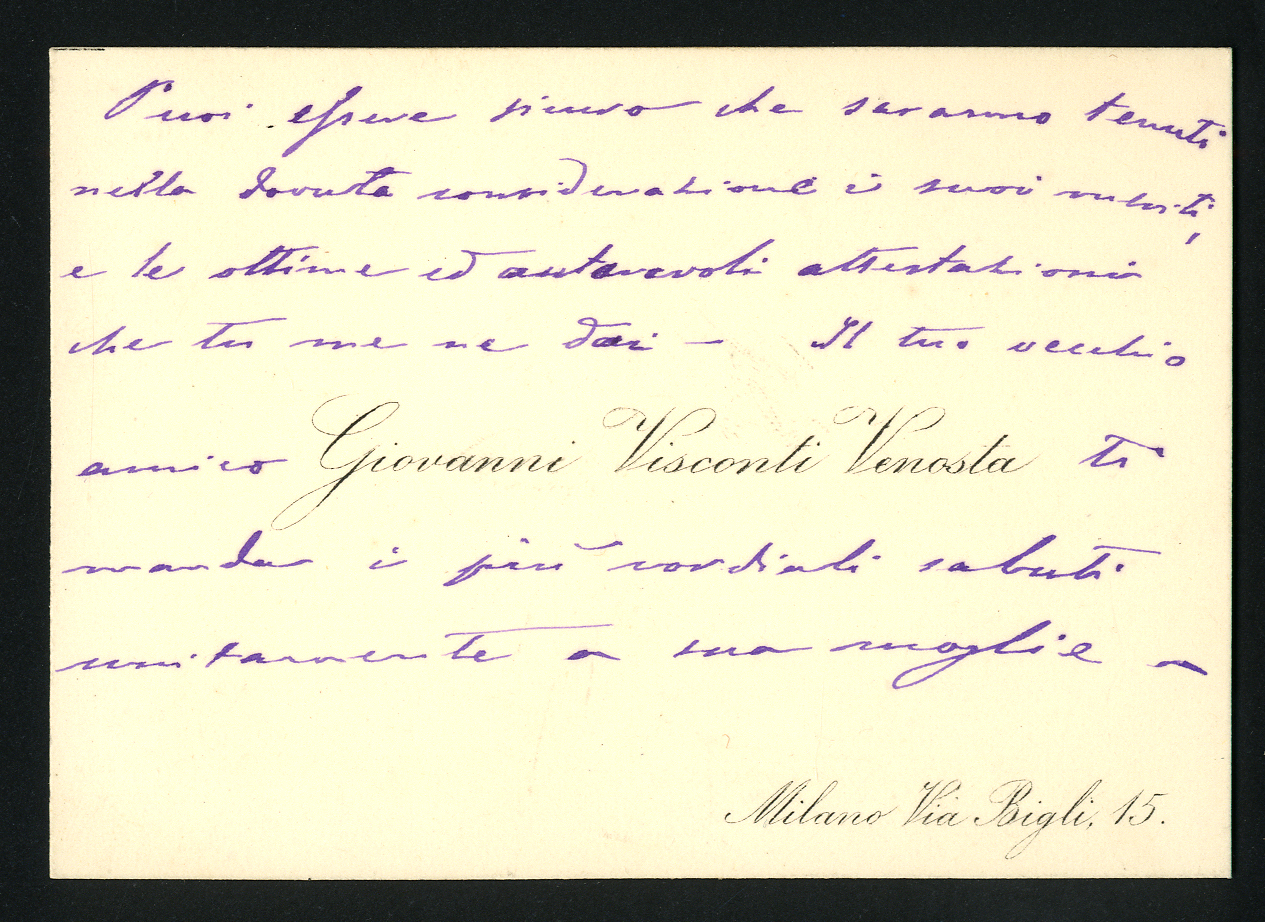 Puoi essere sicuro che saranno tenuti
nella dovuta considerazione i suoi meriti,
e le ottime ed autorevoli attestazioni
che tu me ne dai – Il tuo vecchio
amico Giovanni Visconti Venosta ti
manda i più cordiali saluti
unitamente a sua moglie –
Milano Via Bigli, 15.